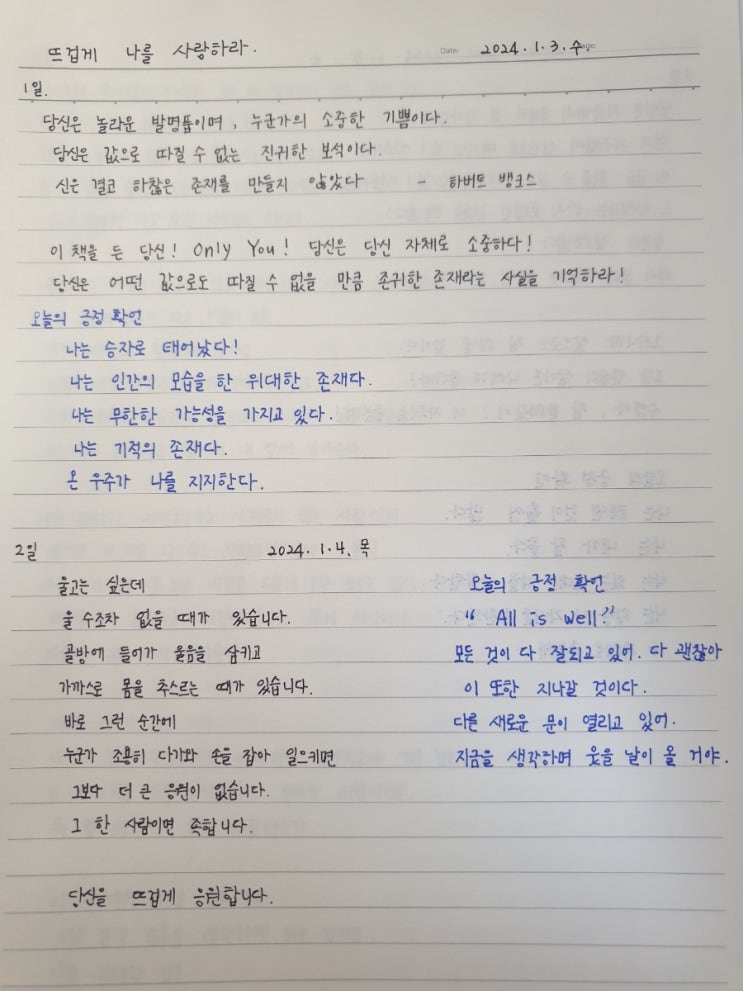 뜨겁게 나를 사랑하라.
Date: 2024.1.3.수 Page:
1일.
당신은 놀라운 발명품이며, 누군가의 소중한 기쁨이다.
당신은 값으로 따질 수 없는 진귀한 보석이다.
신은 결코 하찮은 존재를 만들지 않았다 - 하버트 뱅크스
이 책을 든 당신! Only You! 당신은 당신 자체로 소중하다!
당신은 어떤 값으로도 따질 수 없을 만큼 존귀한 존재라는 사실을 기억하라!
오늘의 긍정 확언
나는 승자로 태어났다!
나는 인간의 모습을 한 위대한 존재다.
나는 무한한 가능성을 가지고 있다.
나는 기적의 존재다.
온 우주가 나를 지지한다.
2일 2024.1.4.목
울고는 싶은데
울 수조차 없을 때가 있습니다.
골방에 들어가 울음을 삼키고
가까스로 몸을 추스르는 때가 있습니다.
바로 그런 순간에
누군가 조용히 다가와 손을 잡아 일으키면
그보다 더 큰 응원이 없습니다.
그 한 사람이면 족합니다.
당신을 뜨겁게 응원합니다.
오늘의 긍정 확언
"All is well"
모든 것이 다 잘되고 있어. 다 괜찮아
이 또한 지나갈 것이다.
다른 새로운 문이 열리고 있어.
지금을 생각하며 웃을 날이 올 거야.